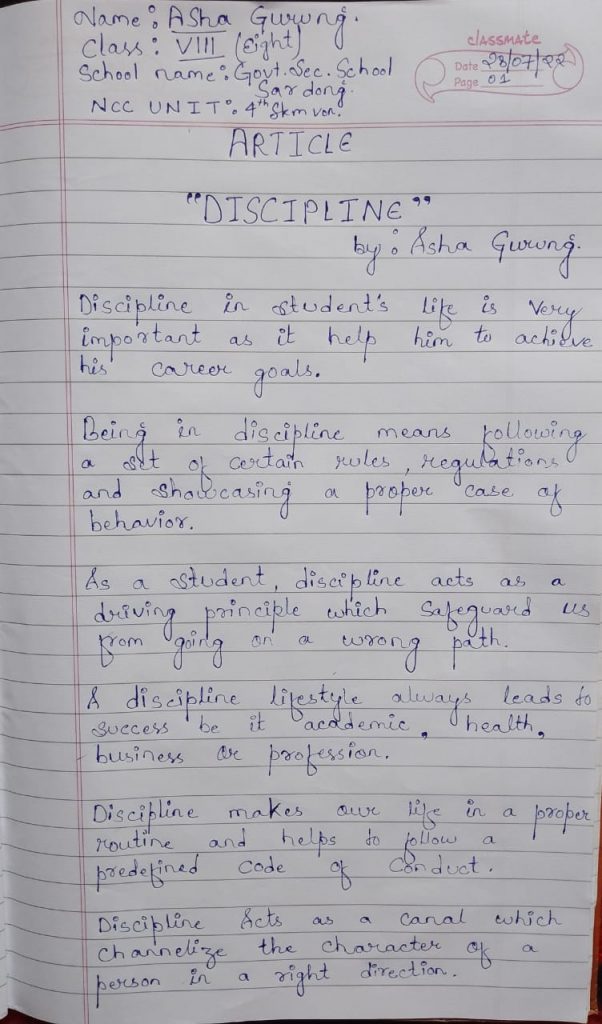 Name: Asha Gurung.
Class: VIII (Eight)
School name: Govt. Sec. School
Sardong.
NCC UNIT: 4th Skm von.
classmate
Date 28/07/22
Page 01
ARTICLE
"DISCIPLINE"
by: Asha Gurung.
Discipline in student's life is very
important as it help him to achieve
his career goals.
Being in discipline means following
a set of certain rules, regulations
and showcasing a proper case of
behavior.
As a student, discipline acts as a
driving principle which safeguard us
from going on a wrong path.
A discipline lifestyle always leads to
success be it academic, health,
business or profession.
Discipline makes our life in a proper
routine and helps to follow a
predefined code of conduct.
Discipline Acts as a canal which
channelize the character of a
person in a right direction.